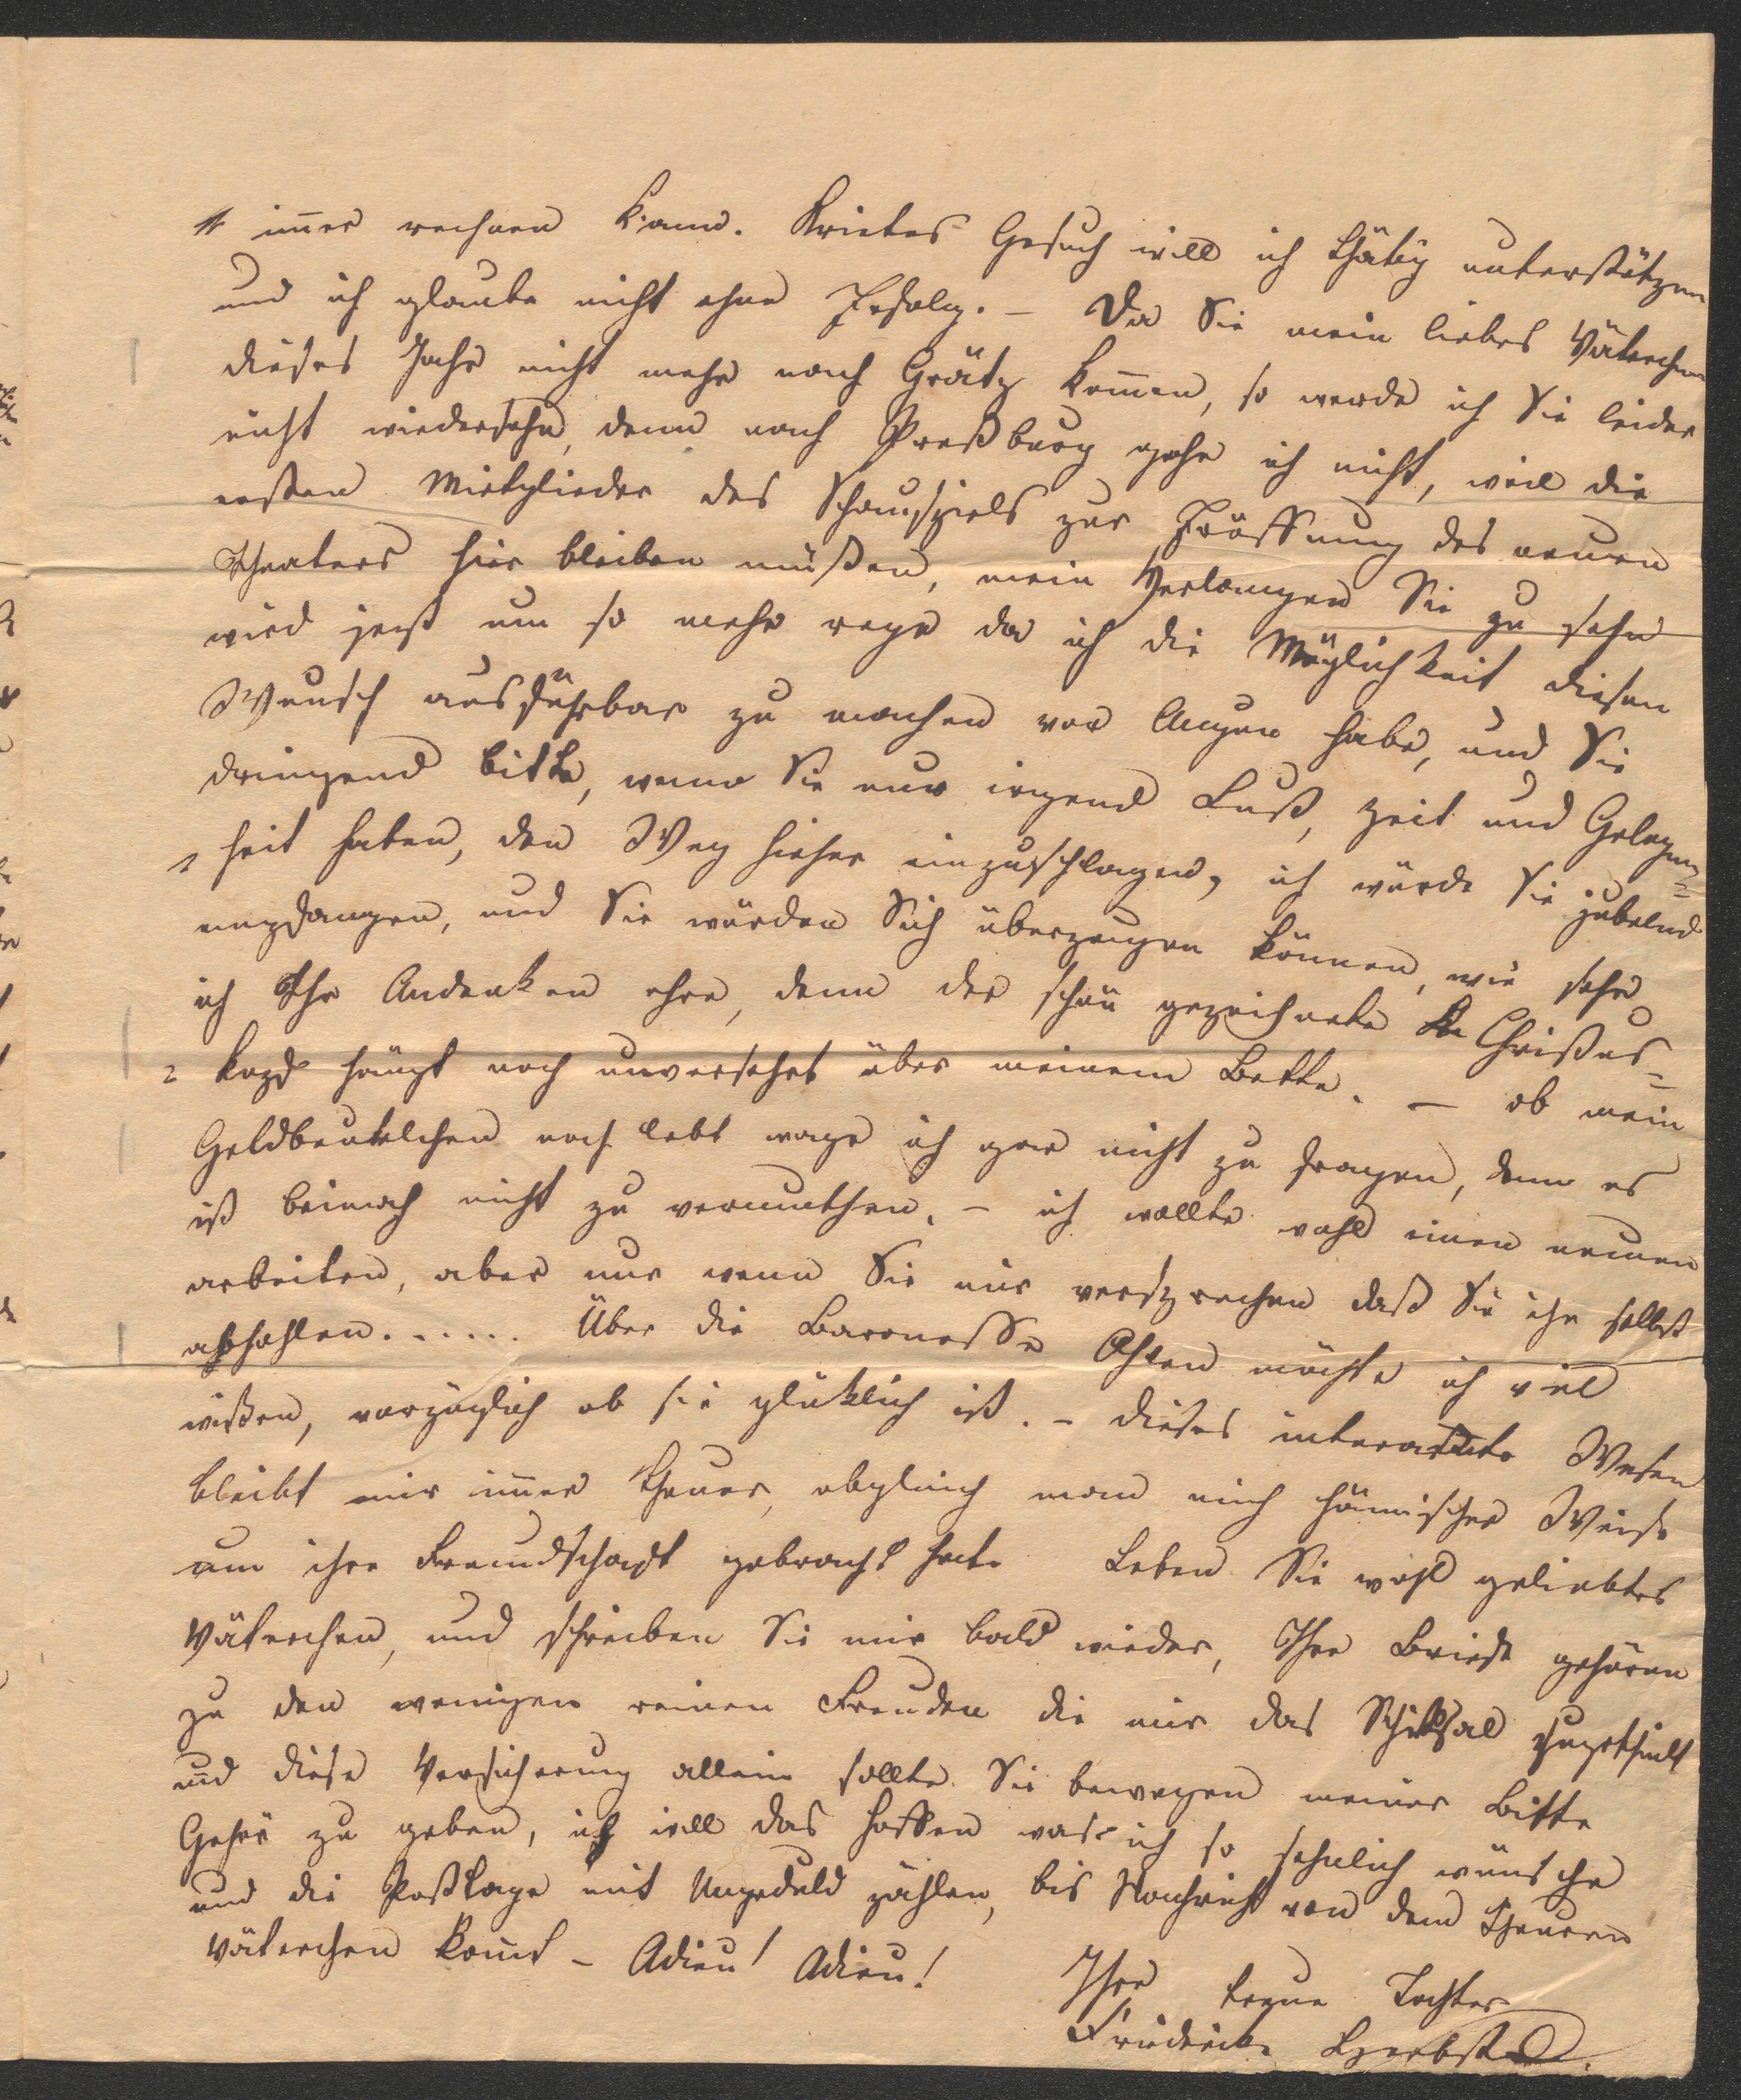 im̅er rechnen kann. Krietes Gesuch will ich thätig unterstützen
und ich glaube nicht ohne Erfolg. – Da Sie mein liebes Väterchen
dieses Jahr nicht mehr nach Grätz kom̅en, so werde ich Sie leider
nicht wiedersehn, denn nach Preßburg gehe ich nicht, weil die
ersten Mitglieder des Schauspiels zur Eröffnung des neuen
Theaters hier bleiben müßen, mein Verlangen Sie zu sehn
wird jezt um so mehr rege da ich die Möglichkeit diesen
Wunsch ausführbar zu machen vor Augen habe, und Sie
dringend bitte, wenn Sie nur irgend Lust, Zeit und Gelegen=
heit haben, den Weg hieher einzuschlagen, ich würde Sie jubelnd
empfangen, und Sie würden Sich überzeugen können, wie sehr
ich Ihr Andenken ehre, denn der schön gezeichnete Christus=
kopf hängt noch unversehrt über meinem Bette. – ob mein
Geldbeutelchen noch lebt wage ich gar nicht zu fragen, denn es
ist beinah nicht zu vermuthen. – ich wollte wohl einen neuen
arbeiten, aber nur wenn Sie mir versprechen daß Sie ihn selbst
abhohlen. . . . . . Über die Baronesse möchte ich viel
wißen, vorzüglich ob sie glüklich ist. – dieses Wesen
bleibt mir im̅er theuer, obgleich man mich hämischer Weise
um ihre Freundschaft gebracht hat. Leben Sie wohl geliebtes
Väterchen, und schreiben Sie mir bald wieder, Ihre Briefe gehören
zu den wenigen reinen Freuden die mir das Schiksal zugetheilt
und diese Versicherung allein sollte Sie bewegen meiner Bitte
Gehör zu geben, ich will das hoffen was ich so sehnlich wünsche
und die Posttage mit Ungeduld zählen, bis Nachricht von dem theuern
Väterchen kom̅t – Adieu! Adieu!
Ihre treue Tochter
Friederike Herbst